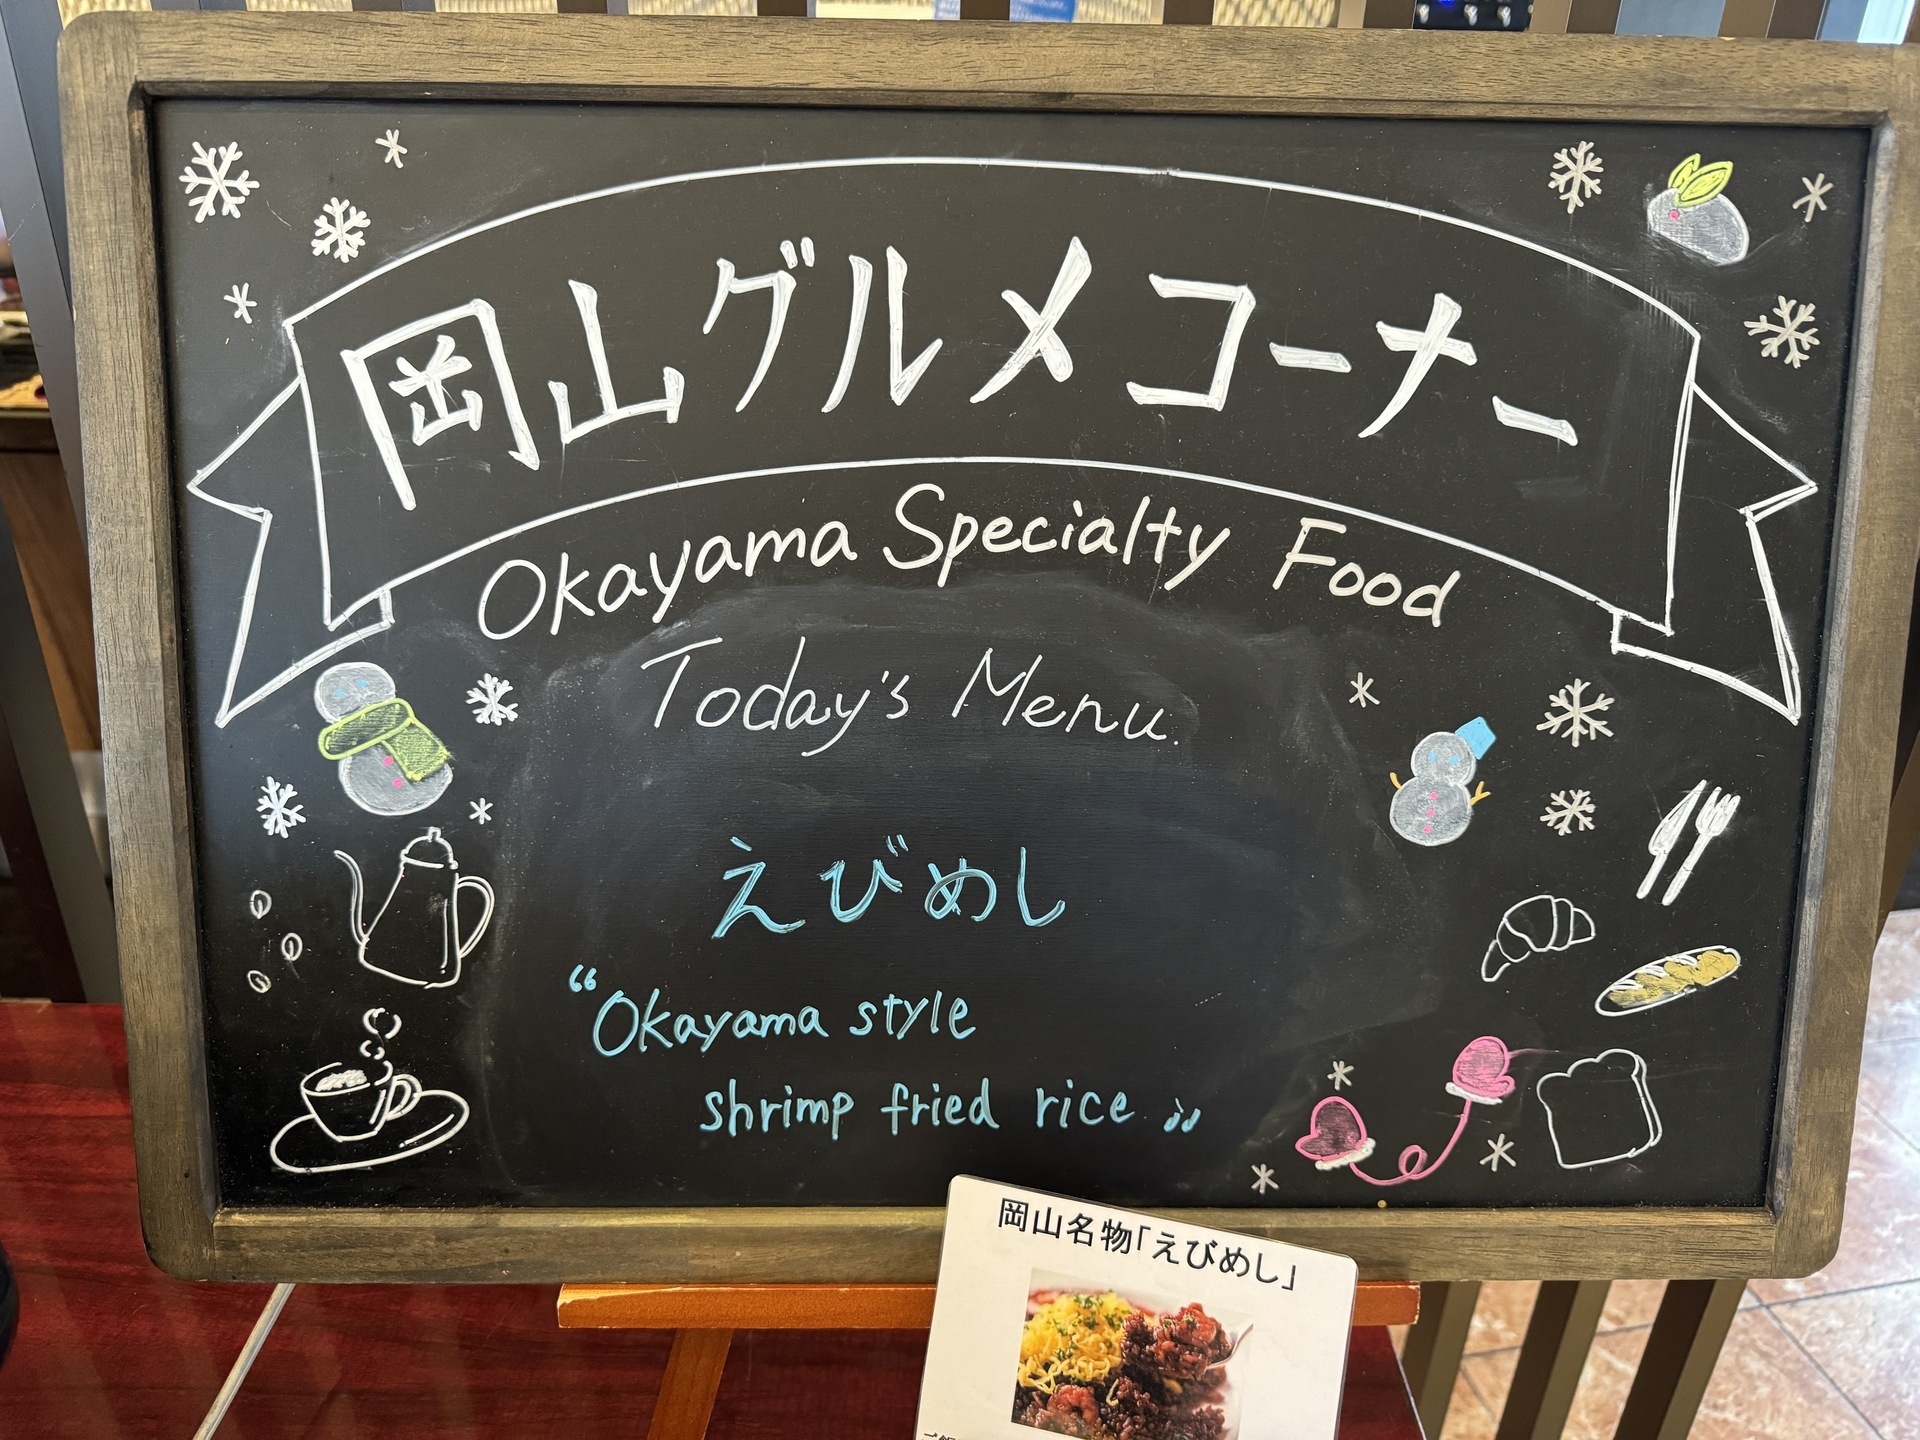 岡山グルメコーナー
Okayama Specialty Food
Today's Menu.
えびめし
"Okayama style
shrimp fried rice „
岡山名物「えびめし」